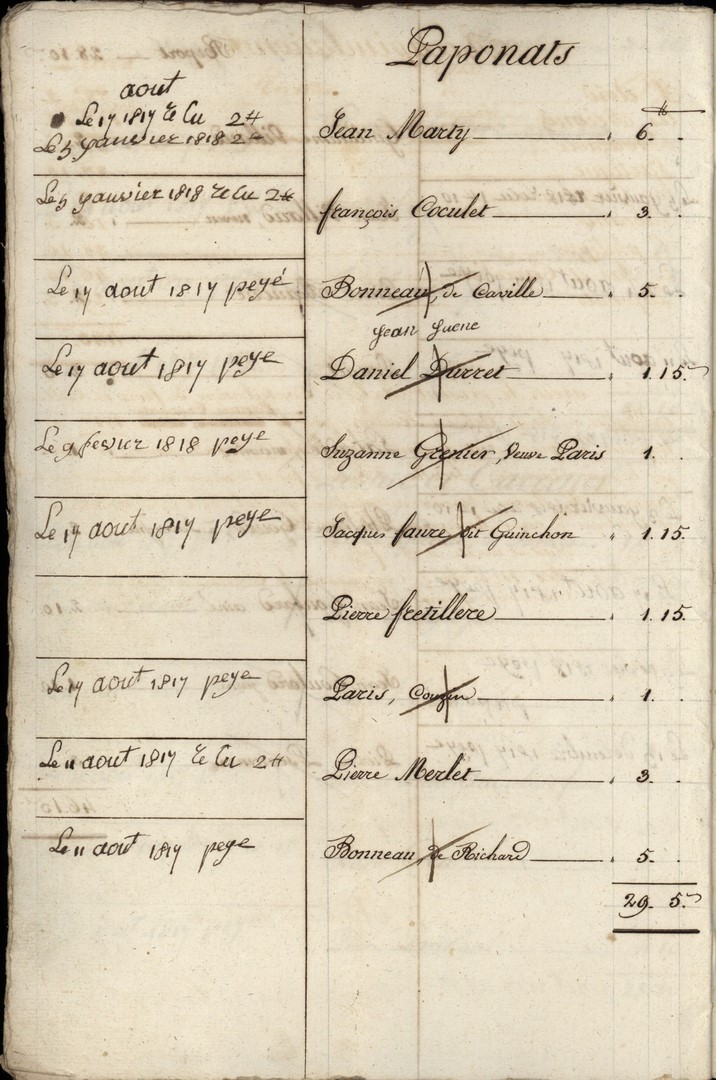 Paponats
aout
Le 17 1817 recu 2#
Le 5 janvier 1818 2#
Jean Marty 6.
Le 5 janvier 1818 recu 2#
françois Coculet 3.
Le 17 aout 1817 peyé
Bonneau, de Caville 5.
jean
Le 17 aout 1817 peye
Daniel Durret 1. 15.
Le 9 fevrier 1818 peye
Suzanne Grenier, veuve Paris 1.
Le 17 aout 1817 peye
Jacques faure dit Guinchon 1. 15.
Pierre fretillere 1. 15.
Le 17 aout 1817 peye
Paris, Couzin 1.
Le 11 aout 1817 recu 2#
Pierre Merlet 3.
Le 11 aout 1817 peye
Bonneau, de Richard 5.
29. 5.